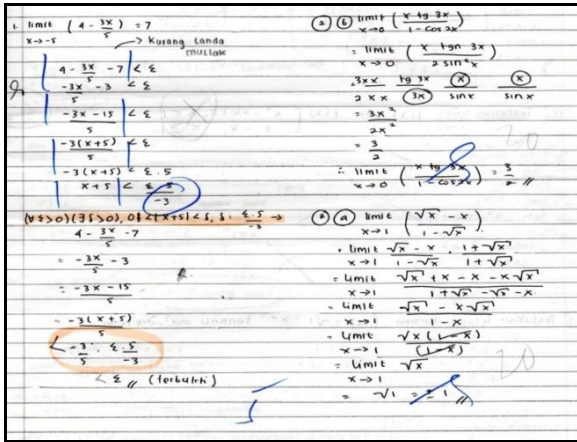 1. limit x→-5 (4 - 3x/5) = 7
→ Kurang tanda mutlak
| 4 - 3x/5 - 7 | < ε
| -3x/5 - 3 | < ε
| -3x - 15 / 5 | < ε
| -3(x+5) / 5 | < ε
| -3(x+5) | < ε . 5
| x+5 | < ε . 5 / -3
(∀ ε>0) (∃ δ>0), 0 < |x+5| < δ, δ = ε.5 / -3 →
4 - 3x/5 - 7
= -3x/5 - 3
= -3x - 15 / 5
= -3(x+5) / 5
< -3/5 . ε.5 / -3
< ε // (terbukti)
5
② ⓑ limit x→0 (x tg 3x / 1 - cos 2x)
= limit x→0 (x tgn 3x / 2 sin²x)
= 3x x / 2 x x tg 3x / 3x x / sin x x / sin x
= 3x² / 2x²
= 3/2
∴ limit x→0 (x tg 3x / 1 - cos 2x) = 3/2 //
20
② ⓐ limit x→1 (√x - x / 1 - √x)
= limit x→1 √x - x / 1 - √x . 1 + √x / 1 + √x
= limit x→1 √x + x - x - x√x / 1 + √x - √x - x
= limit x→1 √x - x√x / 1 - x
= limit x→1 √x (1 - x) / (1 - x)
= limit x→1 √x
= √1 = ± 1 //
20